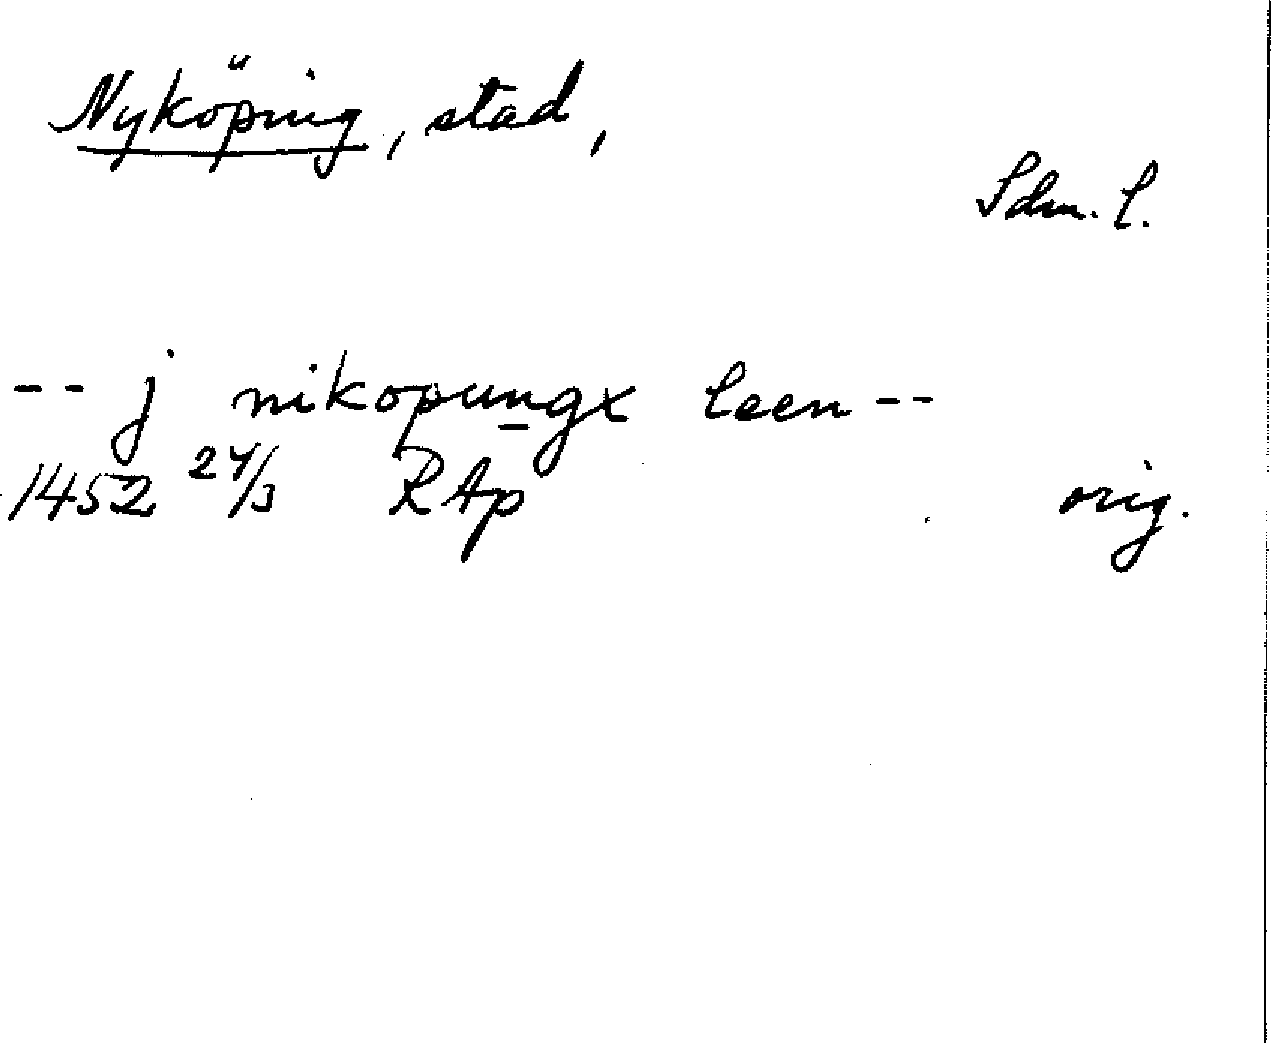 Nyköping, stad,
Sdm. l.
-- j nikopungx leen --
1452 24/3 RAp orig.